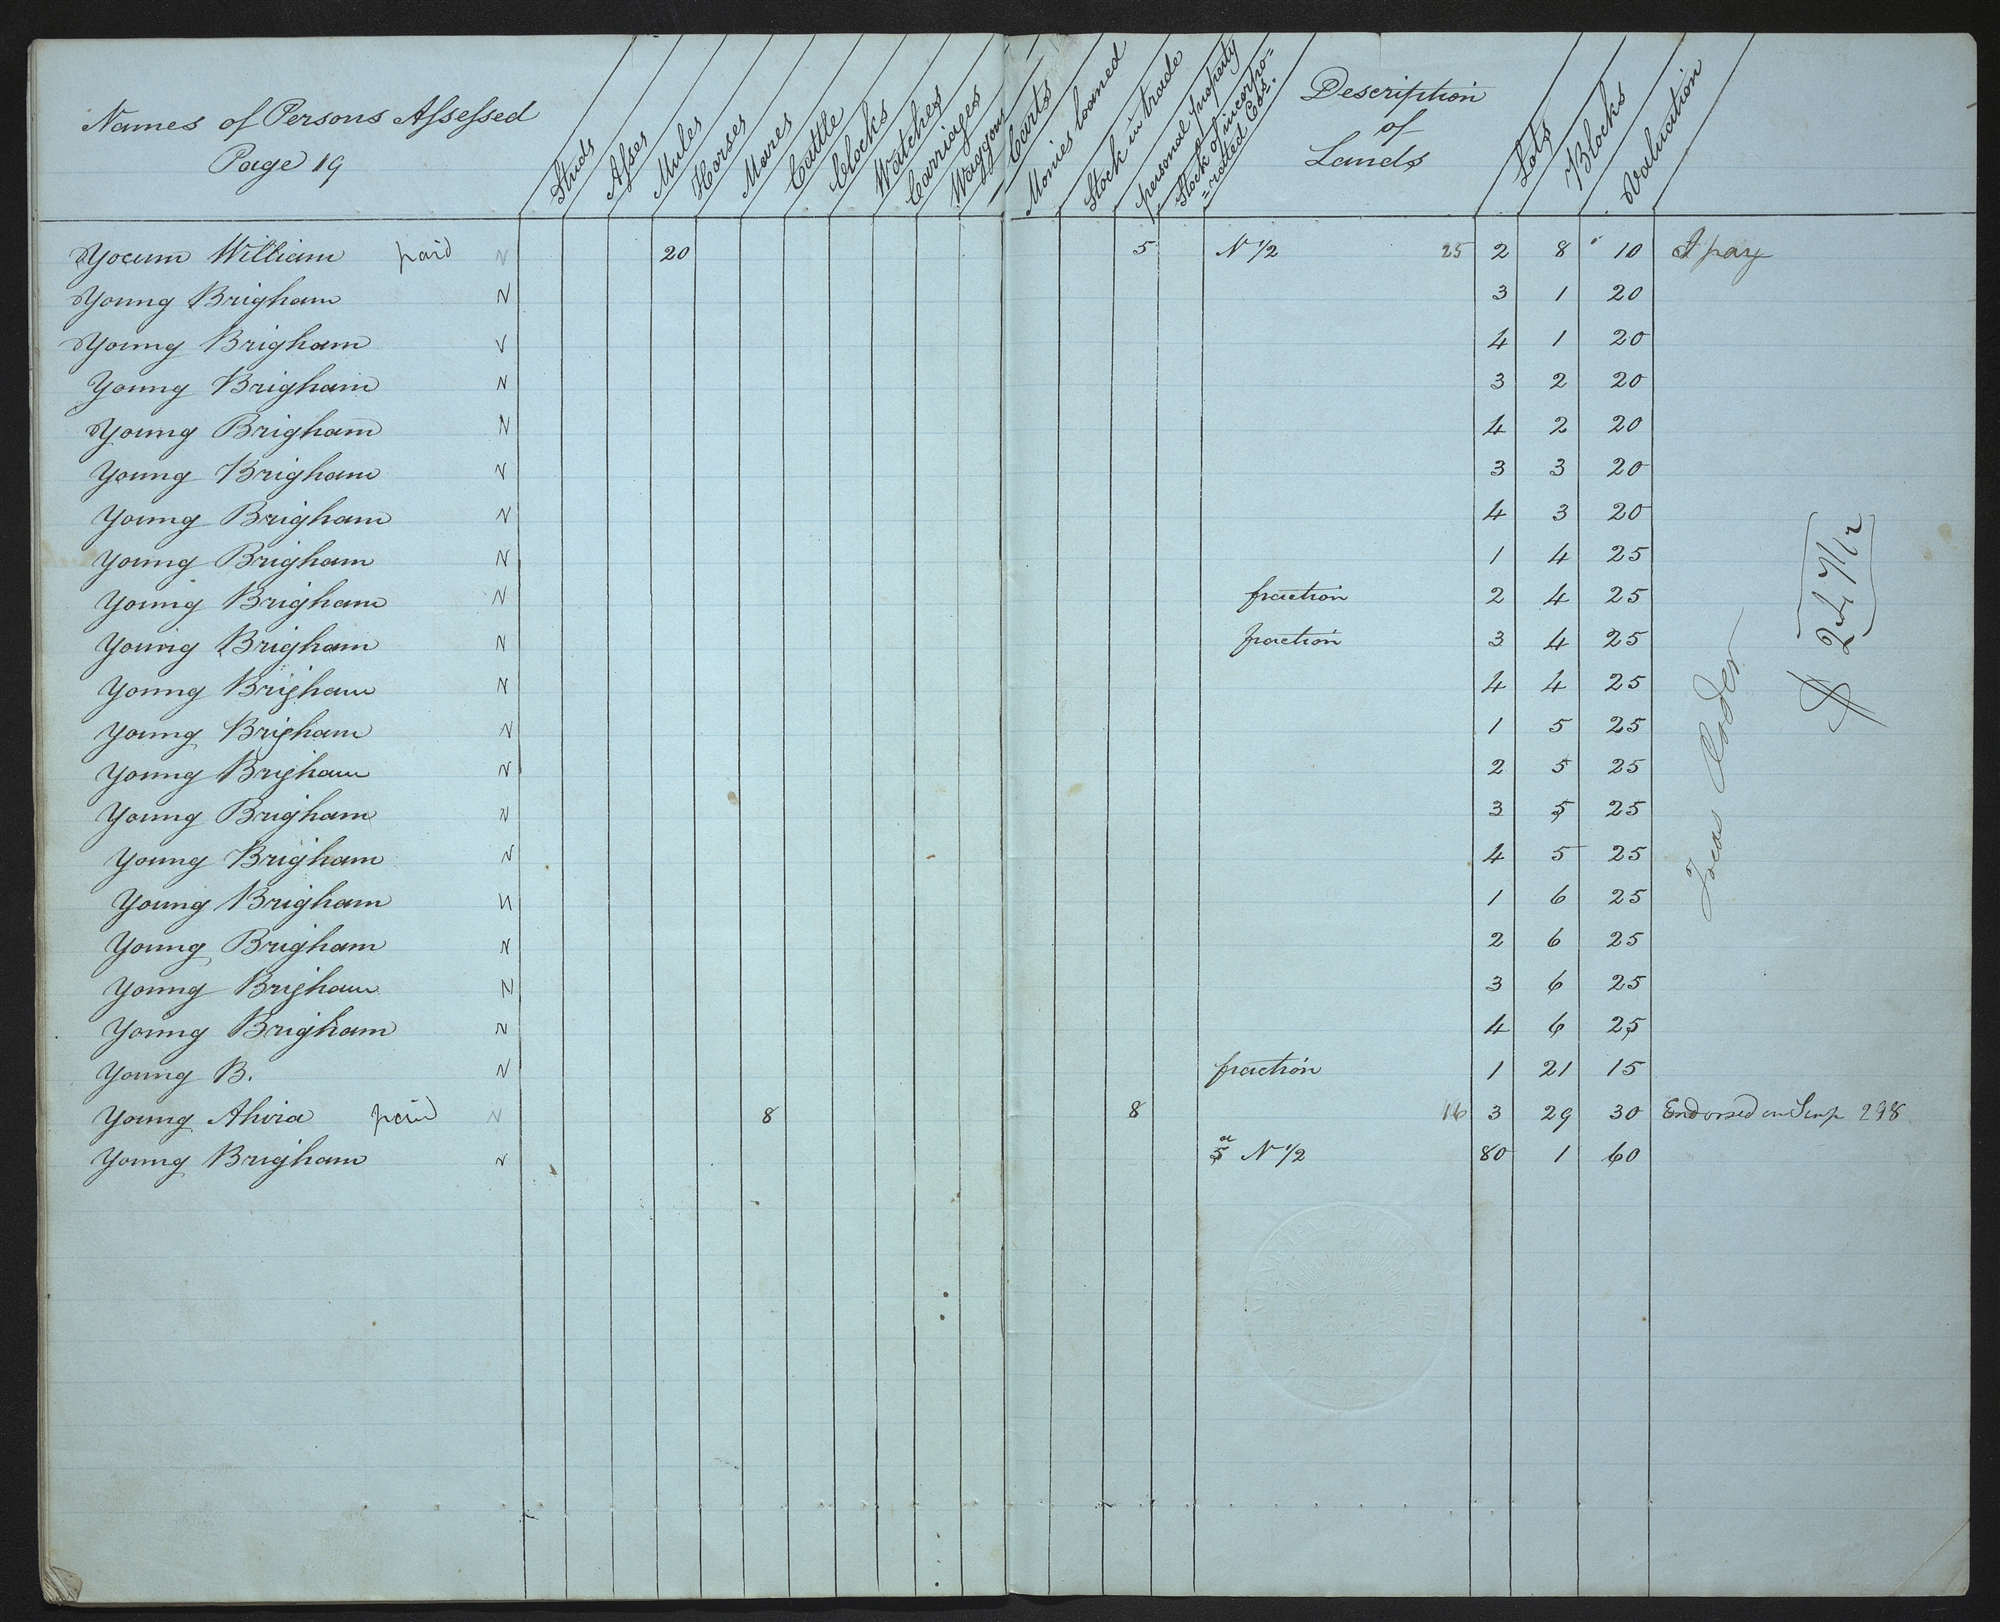 Names of Persons Assessed
Page 19
Studs
Asses
Mules
Horses
Mares
Cattle
Clocks
Watches
Carriages
Waggons
Carts
Monies loaned
Stock in trade
personal property
Stock of incorpo=
=rated Cos.
Description
of
Lands
Lots
Blocks
Valuation
Yocum William paid N 20 5 N 1/2 25 2 8 10 I pay
Young Brigham N 3 1 20
Young Brigham N 4 1 20
Young Brigham N 3 2 20
Young Brigham N 4 2 20
Young Brigham N 3 3 20
Young Brigham N 4 3 20
Young Brigham N 1 4 25
Young Brigham N fraction 2 4 25
Young Brigham N fraction 3 4 25
Young Brigham N 4 4 25
Young Brigham N 1 5 25
Young Brigham N 2 5 25
Young Brigham N 3 5 25
Young Brigham N 4 5 25
Young Brigham N 1 6 25
Young Brigham N 2 6 25
Young Brigham N 3 6 25
Young Brigham N 4 6 25
Young B. N fraction 1 21 15
Young Alvira paid N 8 8 16 3 29 30 Endorsed on 298
Young Brigham N 5 a N 1/2 80 1 60